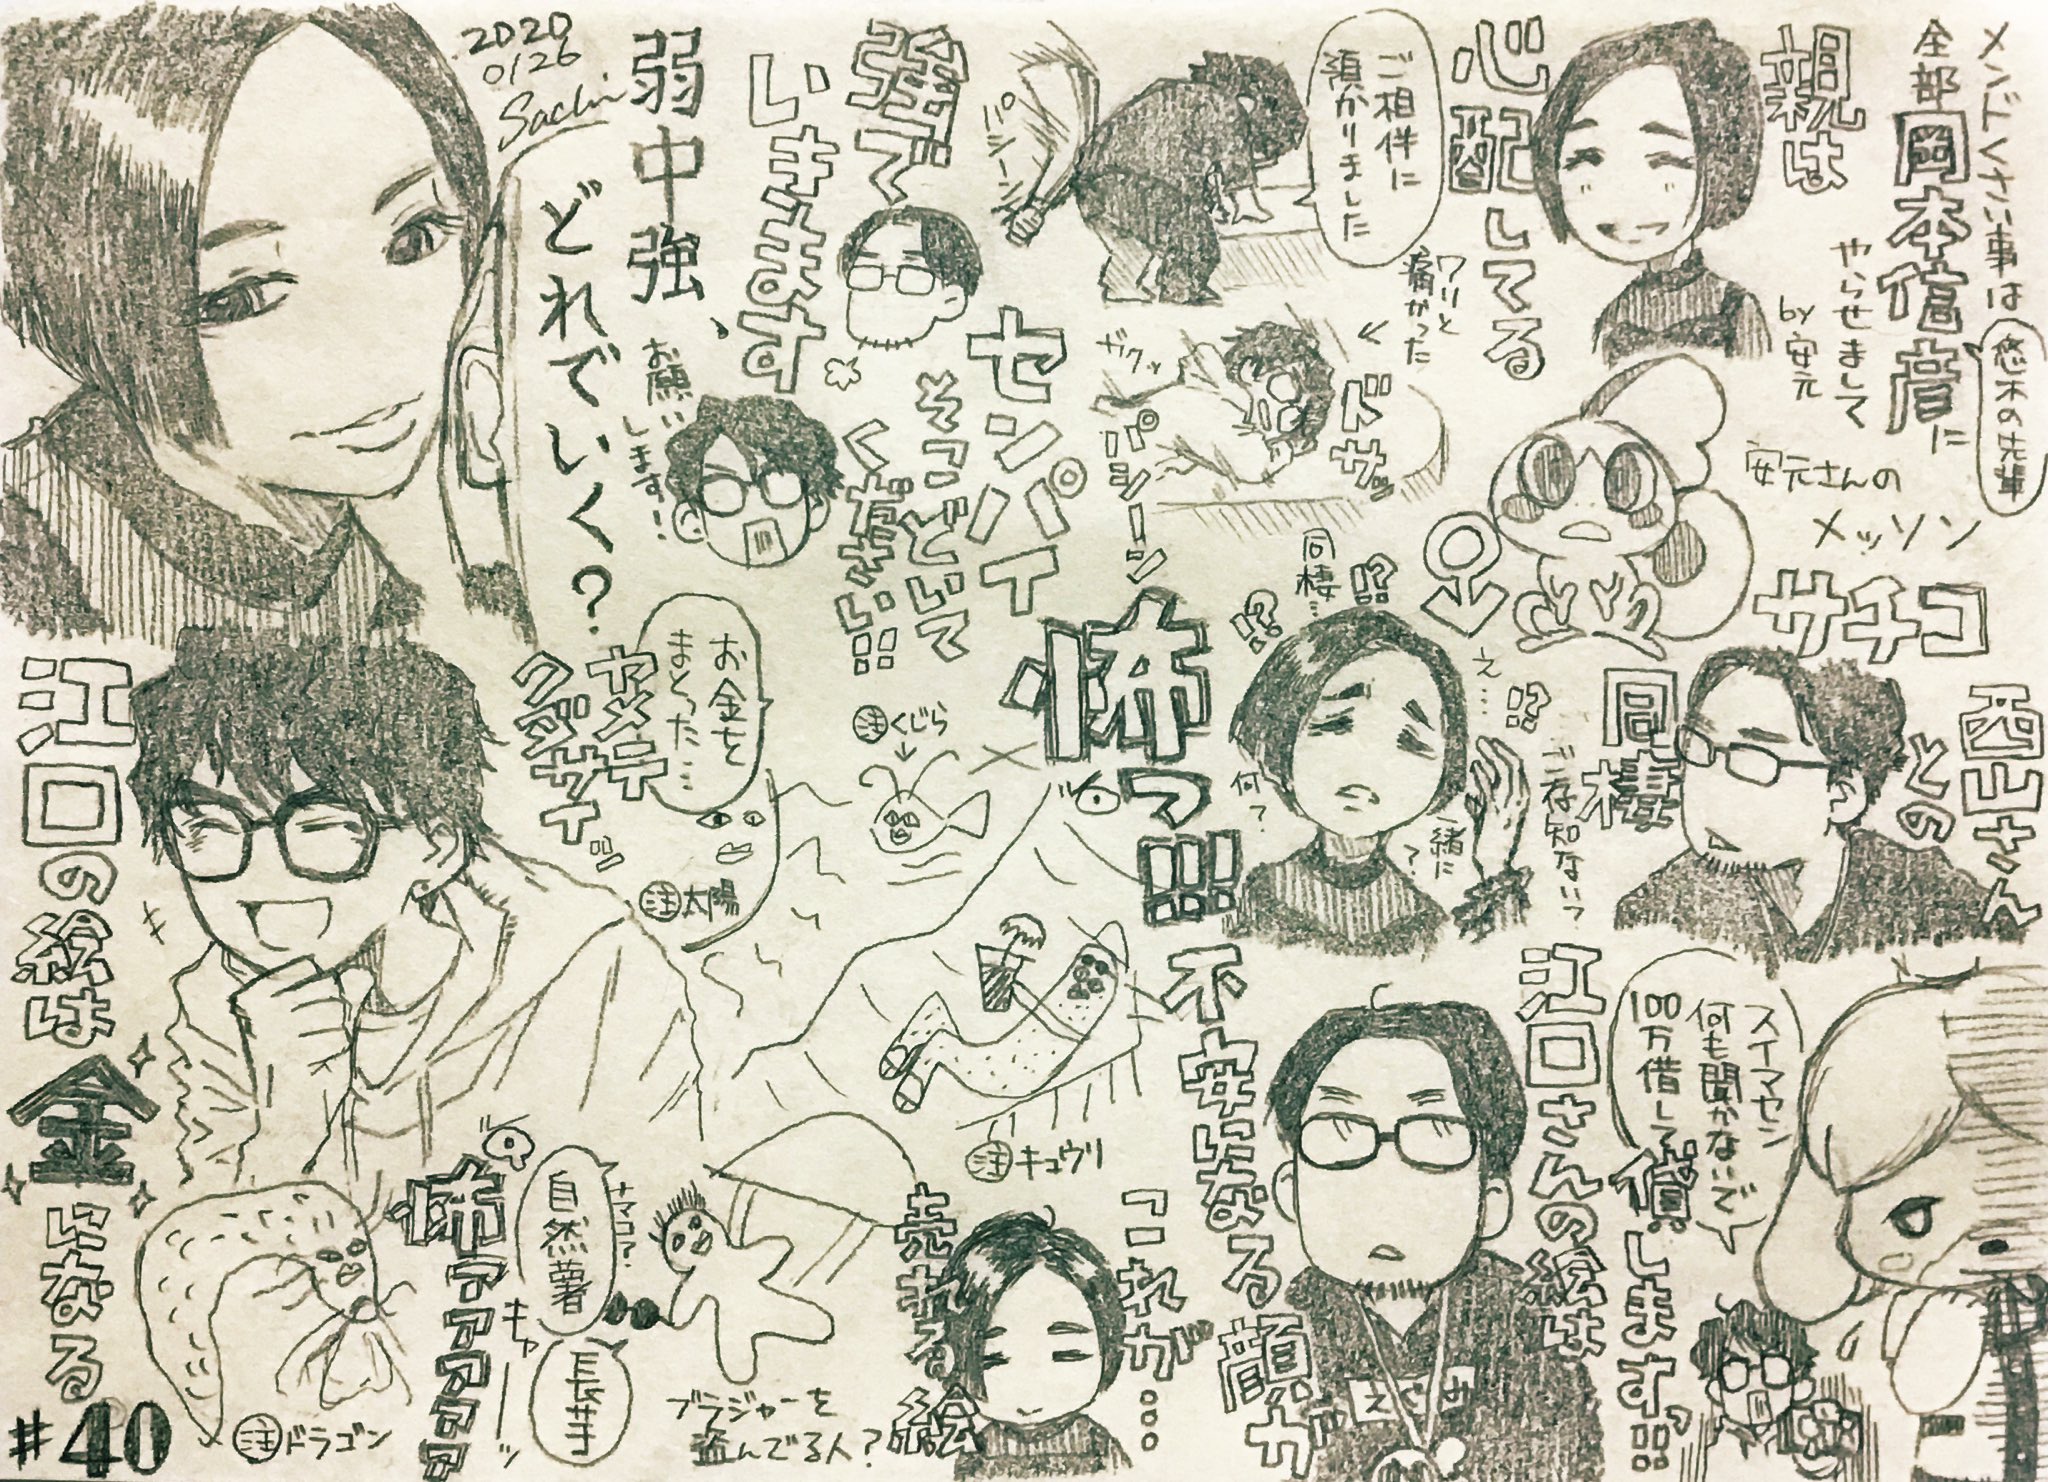 メンドくさい事は
全部岡本信彦に
やらせまして
by安元
悠木の先輩
親は
心配してる
ご相伴に
預かりました
ワリと
痛かった
ドサッ
ガクッ
パシーン
パシーン
安元さんの
メッソン
サチコ
♂
西山さん
との
同棲
ご存知ないっ
!?
え…
一緒に
?
同棲…
!?
!?
何?
センパイ
そこどいて
ください…
弱で
いきます
弱中強、
どれでいく?
お願い
します!
2020
0126
Sachi
怖っ!!!
お金を
まとった…
ヤメテ
クダサイッ
注くじら
注太陽
注キュウリ
江口の絵は
金になる
#40
注ドラゴン
怖アアアア
キャーーッ
自然薯
ナマコ?
長芋
ブラジャーを
盗んでる人?
これが…
売れる
絵
江口さんの絵は
不安になる
顔が
えぐみ
スイマセン
何も聞かないで
100万借してっ
貸しますっ…